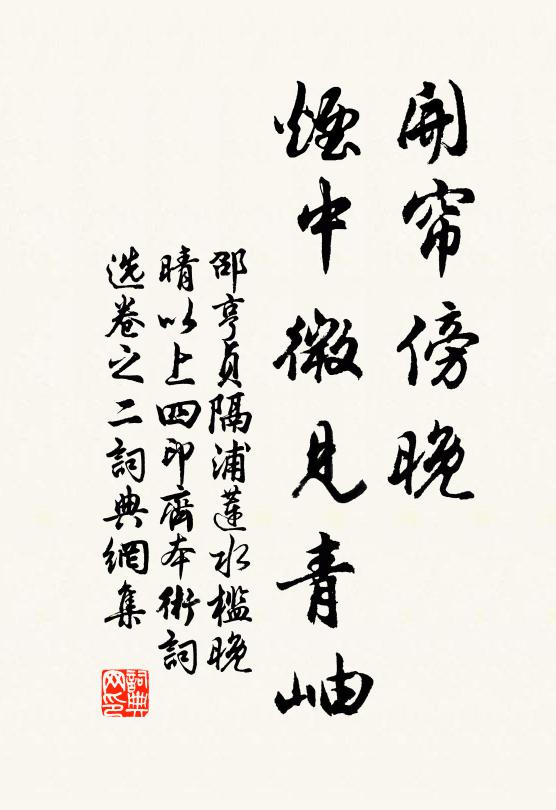 開帘傍晚
煙中微見青岫
邵亨貞隔浦蓮水檻晚
晴以上四印齋本術詞
选卷之二詞典網集
詞典
网印